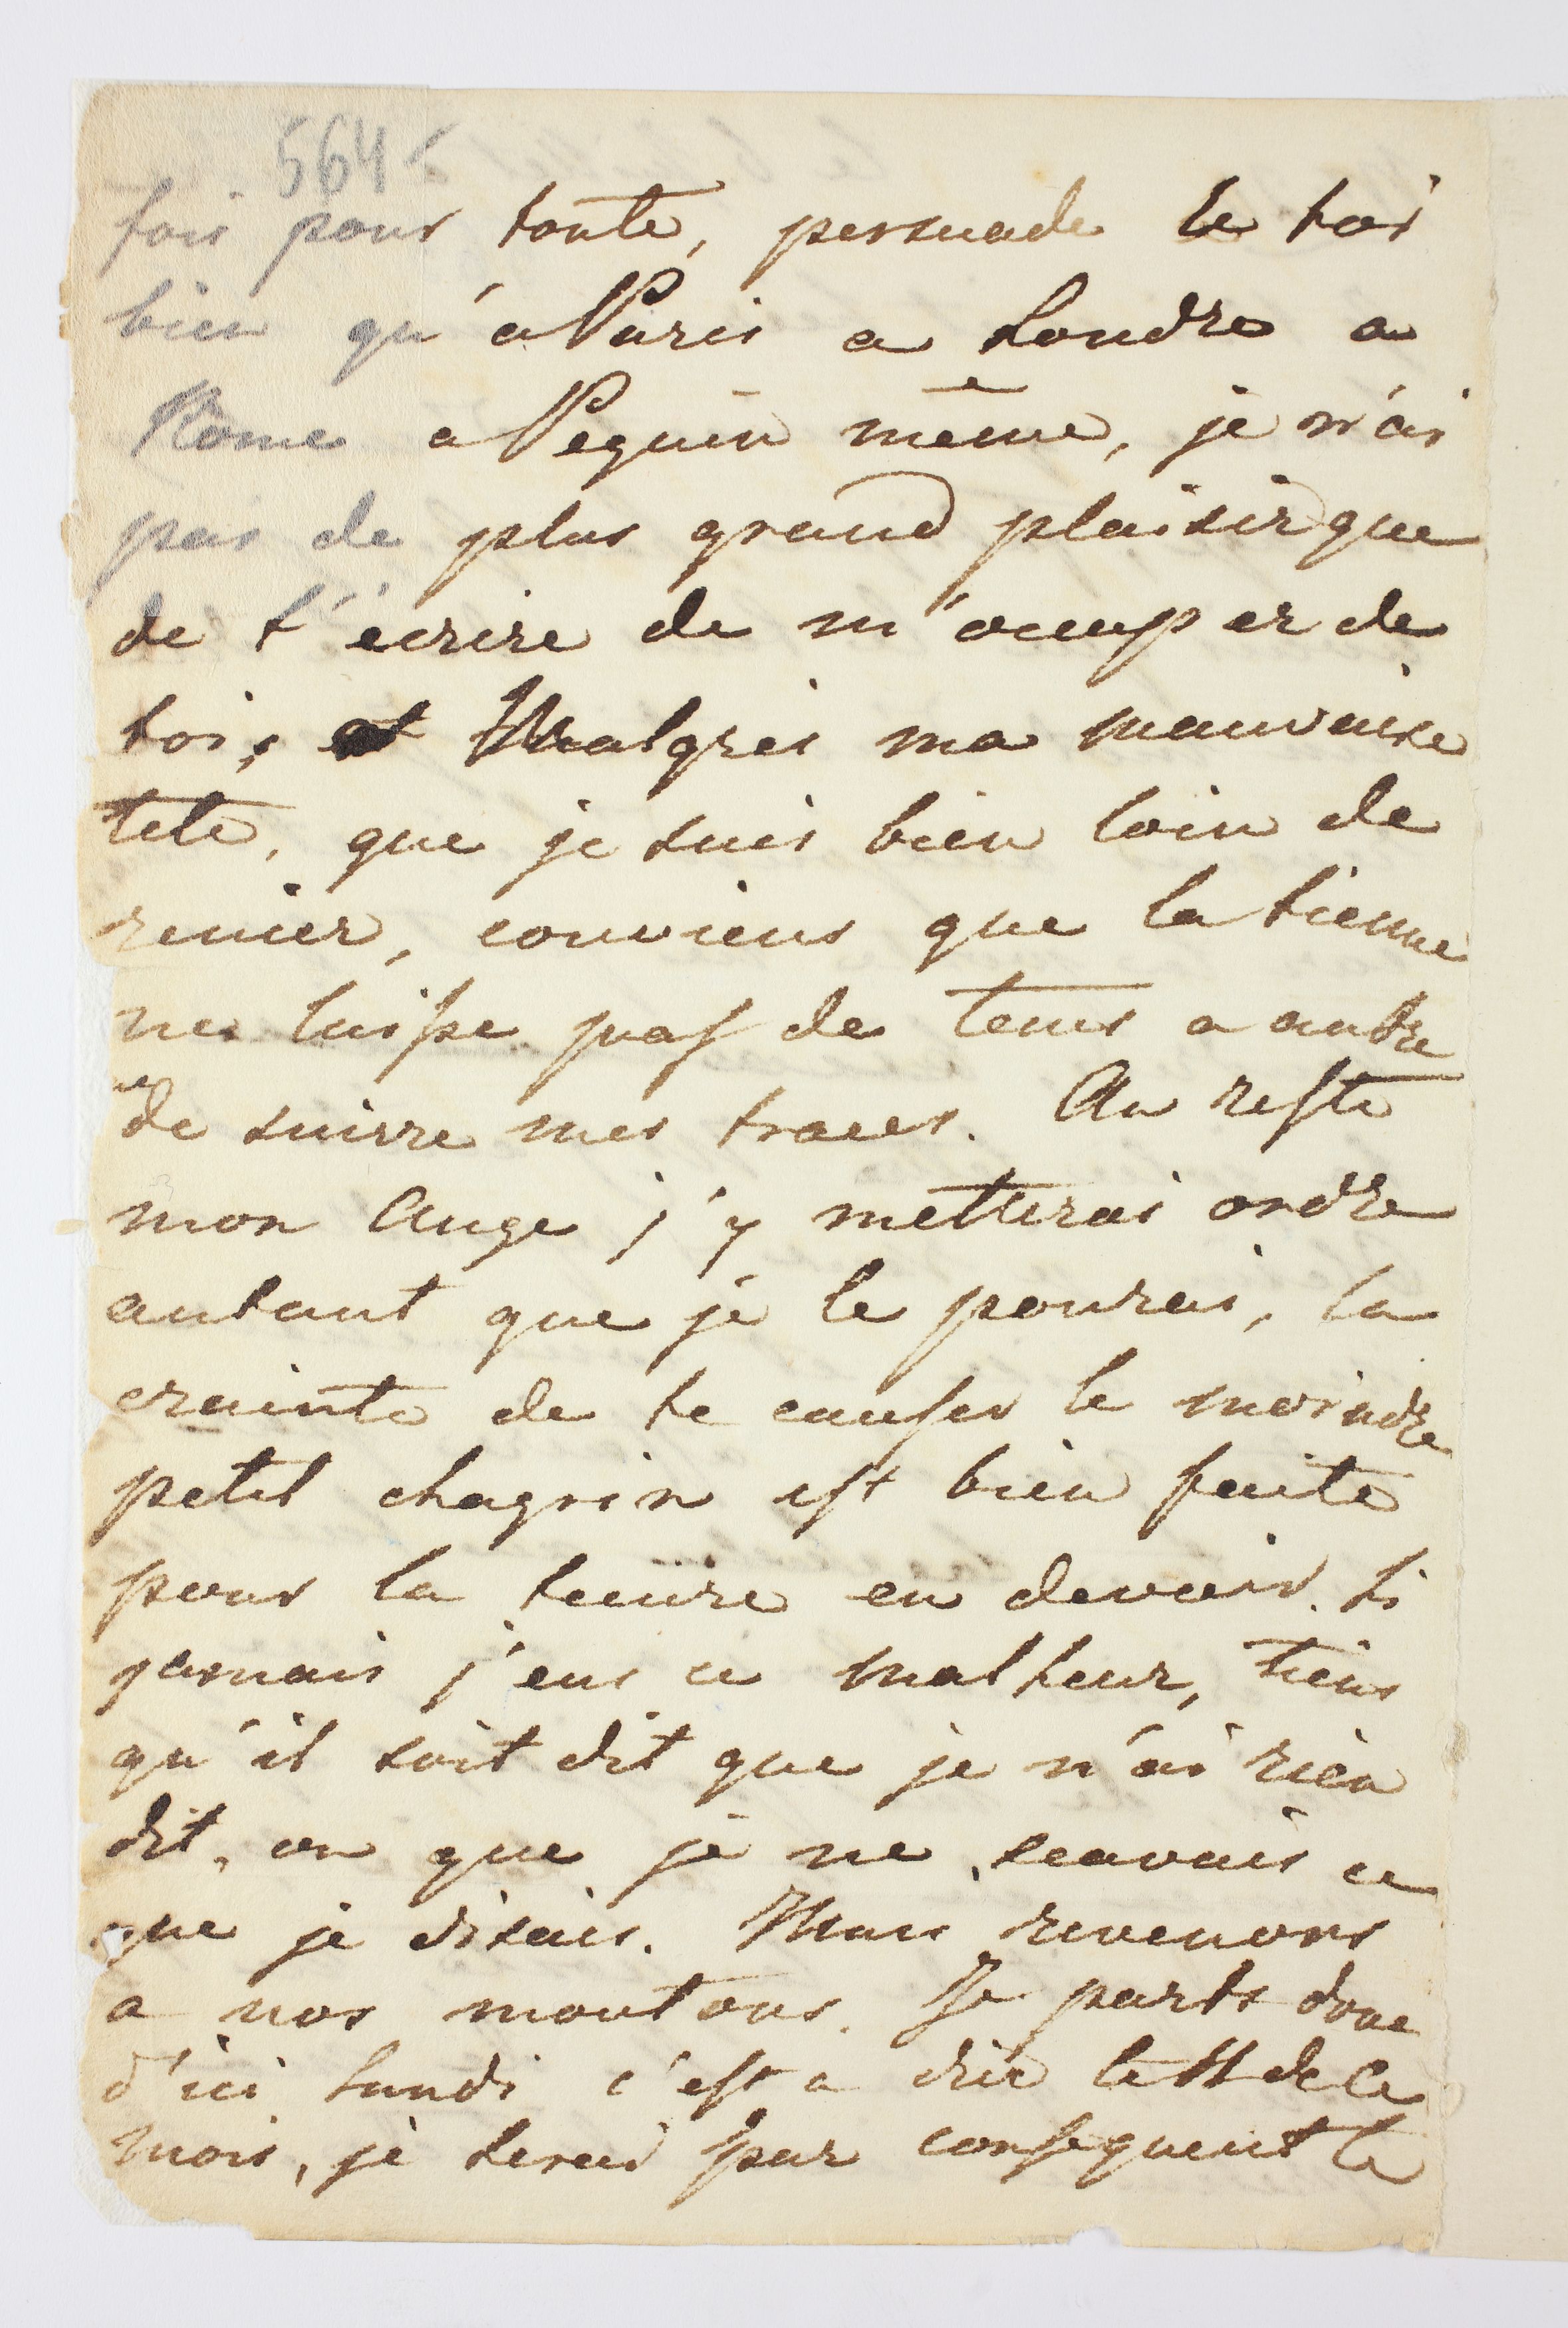 5645
fois pour toute, persuade le toi
bien qu'a Paris a Londre a
Rome a Pequin même, je n'ai
pas de plus grand plaisir que
de t'écrire de m'ocuper de
toi, et Malgrés ma mauvaise
tete, que je suis bien loin de
renier, conviens que la tienne
ne laisse pas de tems a autre
de suivre mes traces. Au reste
mon Ange j'y metterai ordre
autant que je le pourai, la
crainte de te causer le moindre
petit chagrin est bien faite
pour la tenire en devoir. Si
jamais j'eus ce malheur, tiens
qu'il soit dit que je n'ai rien
dit, ou que je ne scavais ce
que je disais. Mais revenons
a nos moutons. Je parts donc
d'ici Lundi c'est a dire le 11 de ce
mois, je serai par consequent le